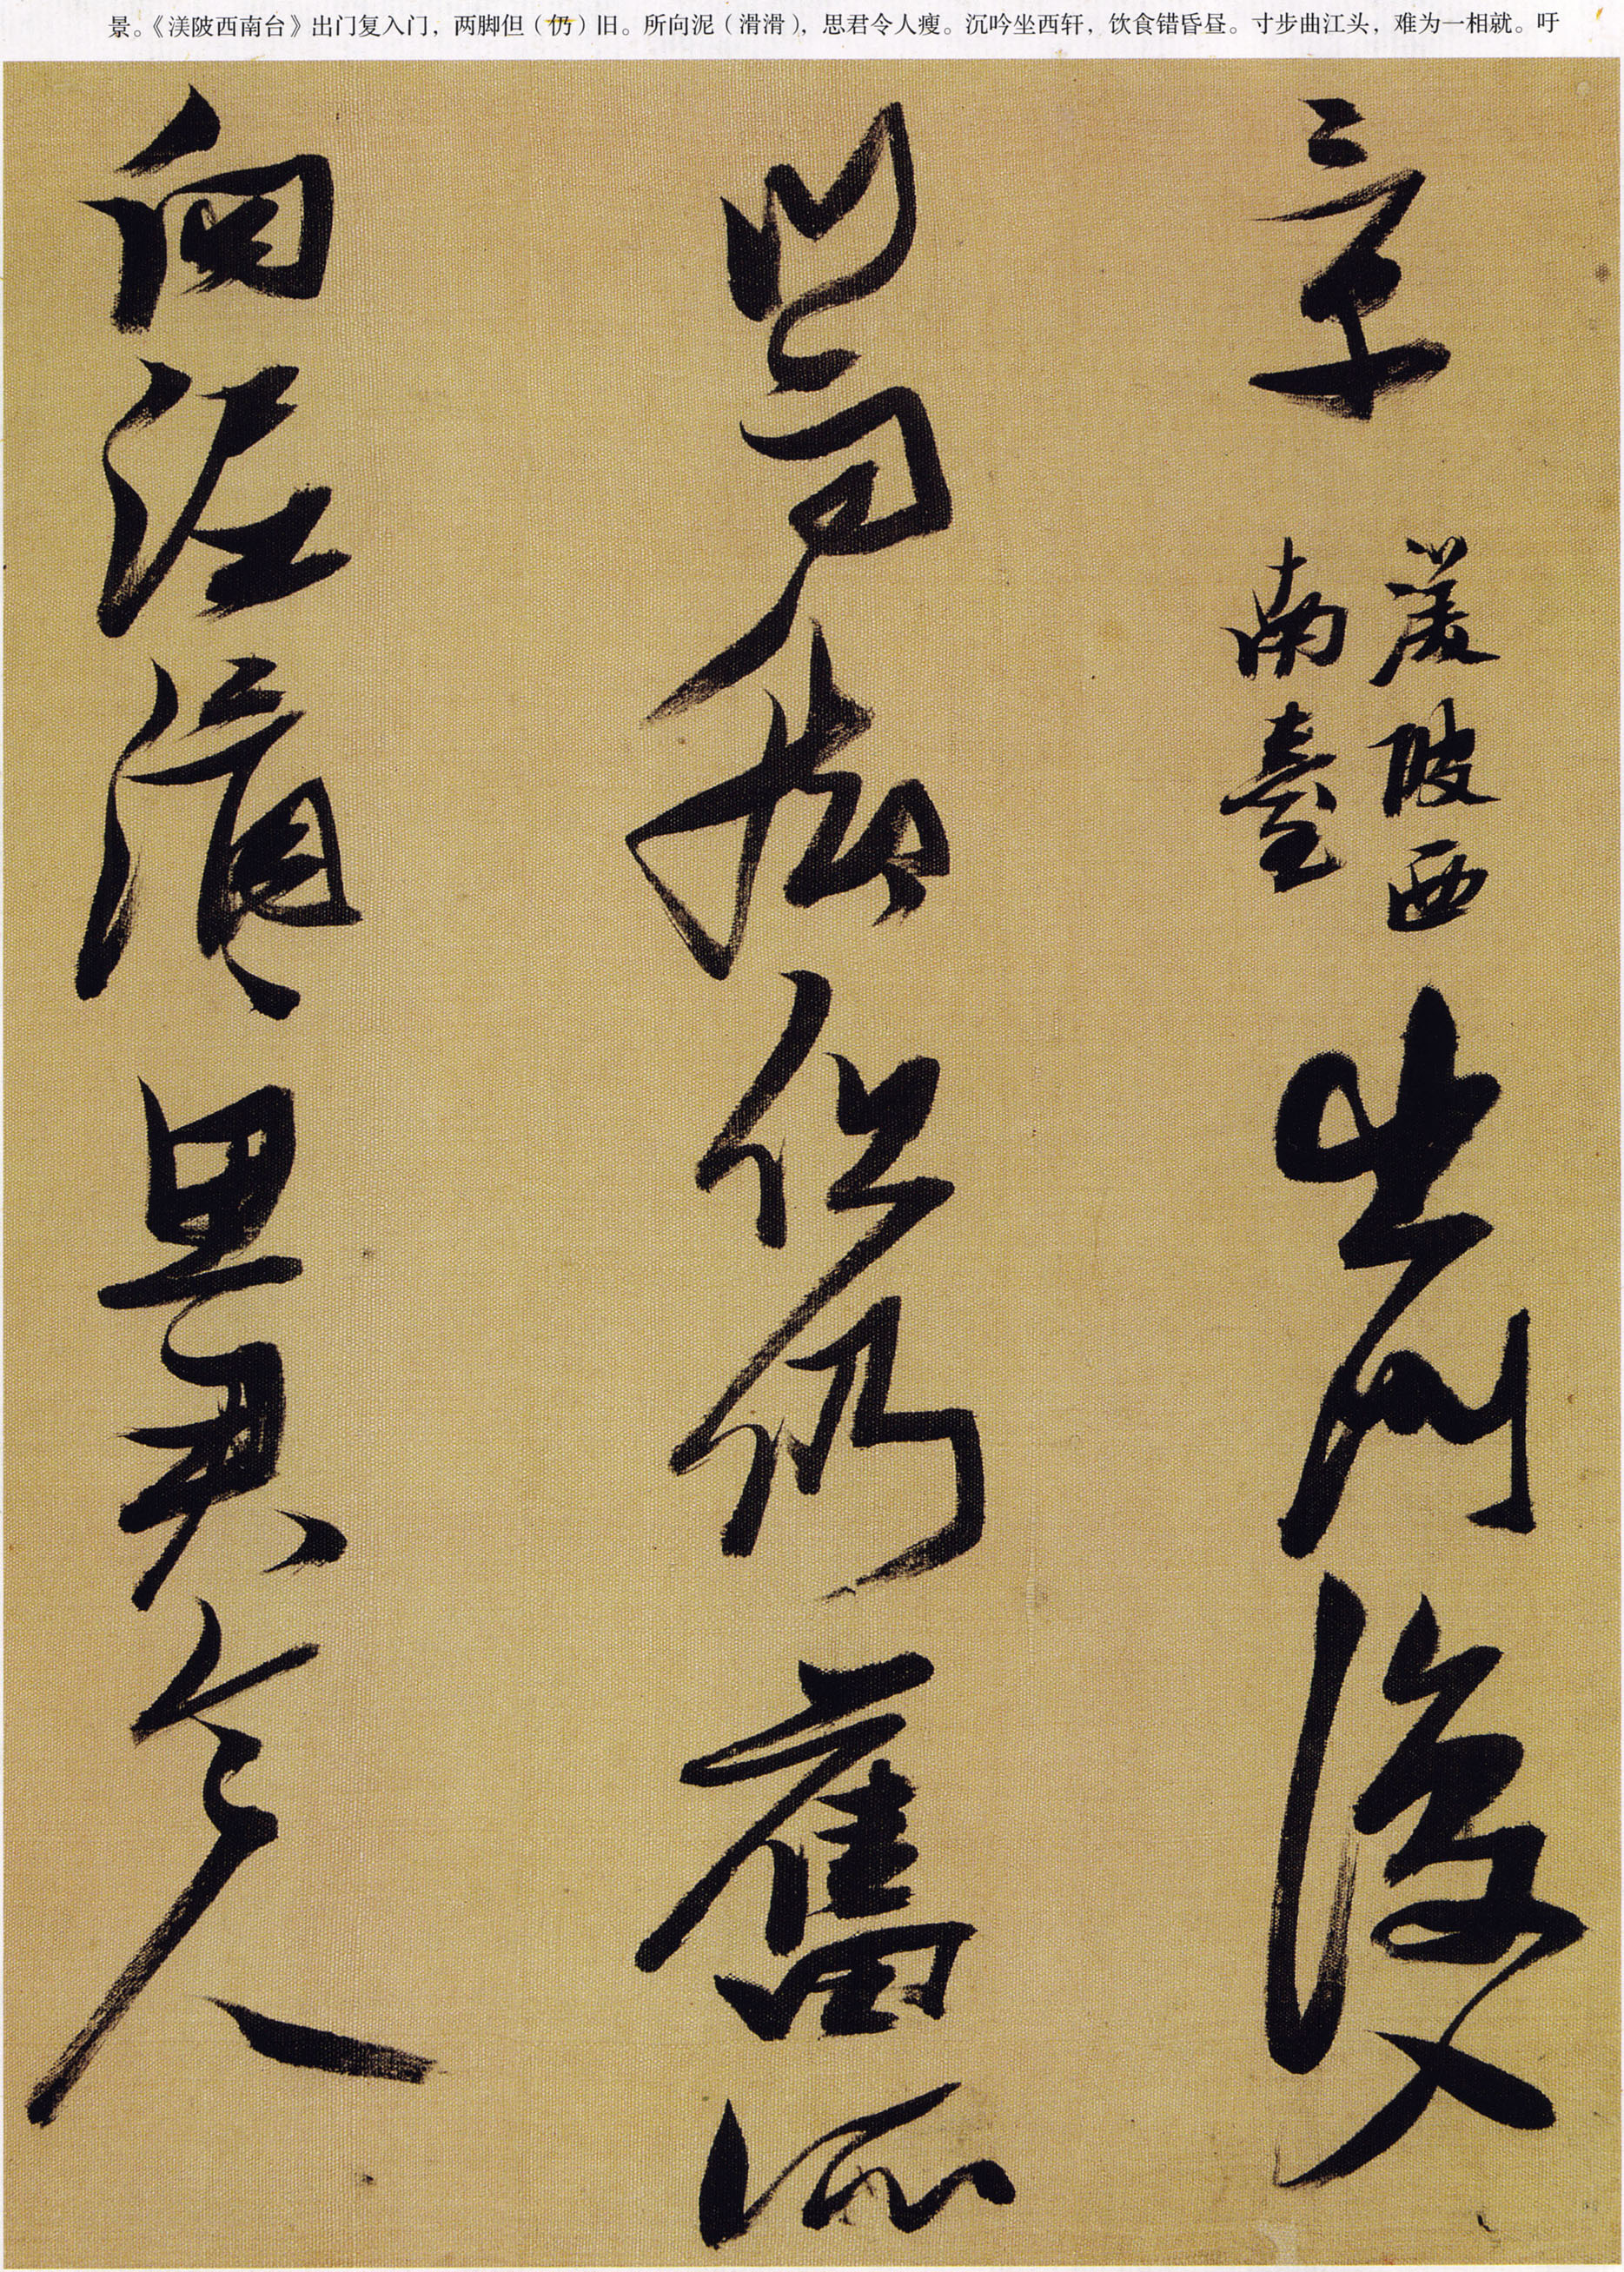 景。《渼陂西南台》出门复入门，两脚但（仍）旧。所向泥（滑滑），思君令人瘦。沉吟坐西轩，饮食错昏昼。寸步曲江头，难为一相就。吁
渼陂西
南臺
出門復入
門兩脚但仍舊所
向泥滑〻思君令人